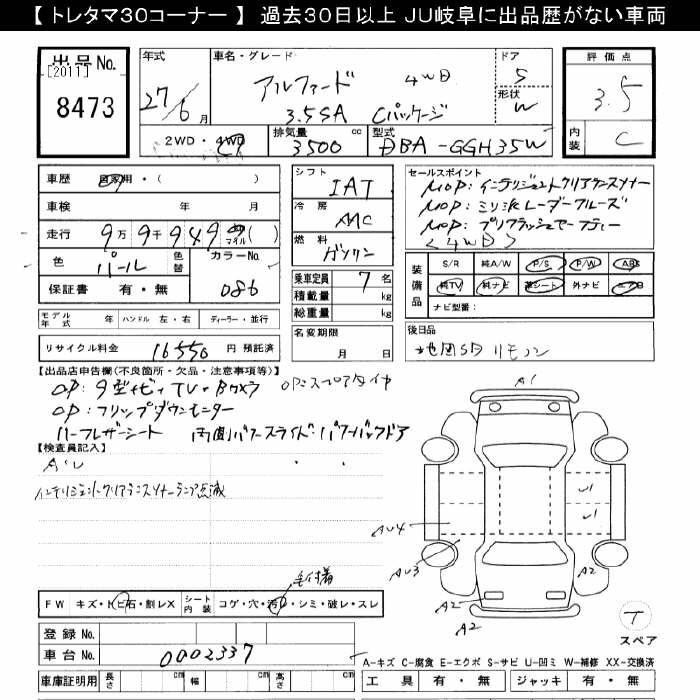 【 トレタマ30コーナー 】 過去30日以上 JU岐阜に出品歴がない車両
出品No.
[2011]
8473
年式
27/6月
車名・グレード
アルファード 4WD
3.5SA Cパッケージ
ドア
5
形状
W
評価点
3.5
内装
C
2WD・4WD
排気量
3500 cc
型式
DBA-GGH35W
車歴 自家用・( )
車検 年 月
走行 9万9千949 マイル ( )
色 パール 色替 カラーNo. 086
保証書 有・無
シフト
IAT
冷房
AAC
燃料
ガソリン
乗車定員 7 名
積載量 kg
総重量 kg
名変期限
月 日
セールスポイント
MOP:インテリジェントクリアランスソナー
MOP:ミリ波レーダークルーズ
MOP:プリクラッシュセーフティー
<4WD>
装備品
S/R 純A/W P/S P/W ABS
純TV 純ナビ 革シート 外ナビ エアB
ナビ型番:
モデル年式 年 ハンドル 左・右 ディーラー・並行
リサイクル料金 16550 円 預託済
後日品
地図SD リモコン
【出品店申告欄(不良箇所・欠品・注意事項等)】
OP:9型ナビ+TV+Bカメラ OPスペアタイヤ
OP:フリップダウンモニター
ハーフレザーシート 両側パワースライド・パワーバックドア
【検査員記入】
AU
インテリジェントクリアランスソナーランプ点滅
毛付着
FW キズ・トビ石・割レX シート内装 コゲ・穴・汚レ・シミ・破レ・スレ
登録No.
車台No. 0002337
車庫証明用 長さ cm 幅 cm 高さ cm
A1
U1
U1
AU4
AU3
A2
A2
A2
T
スペア
A-キズ C-腐食 E-エクボ S-サビ U-凹ミ W-補修 XX-交換済
工具 有・無 ジャッキ 有・無